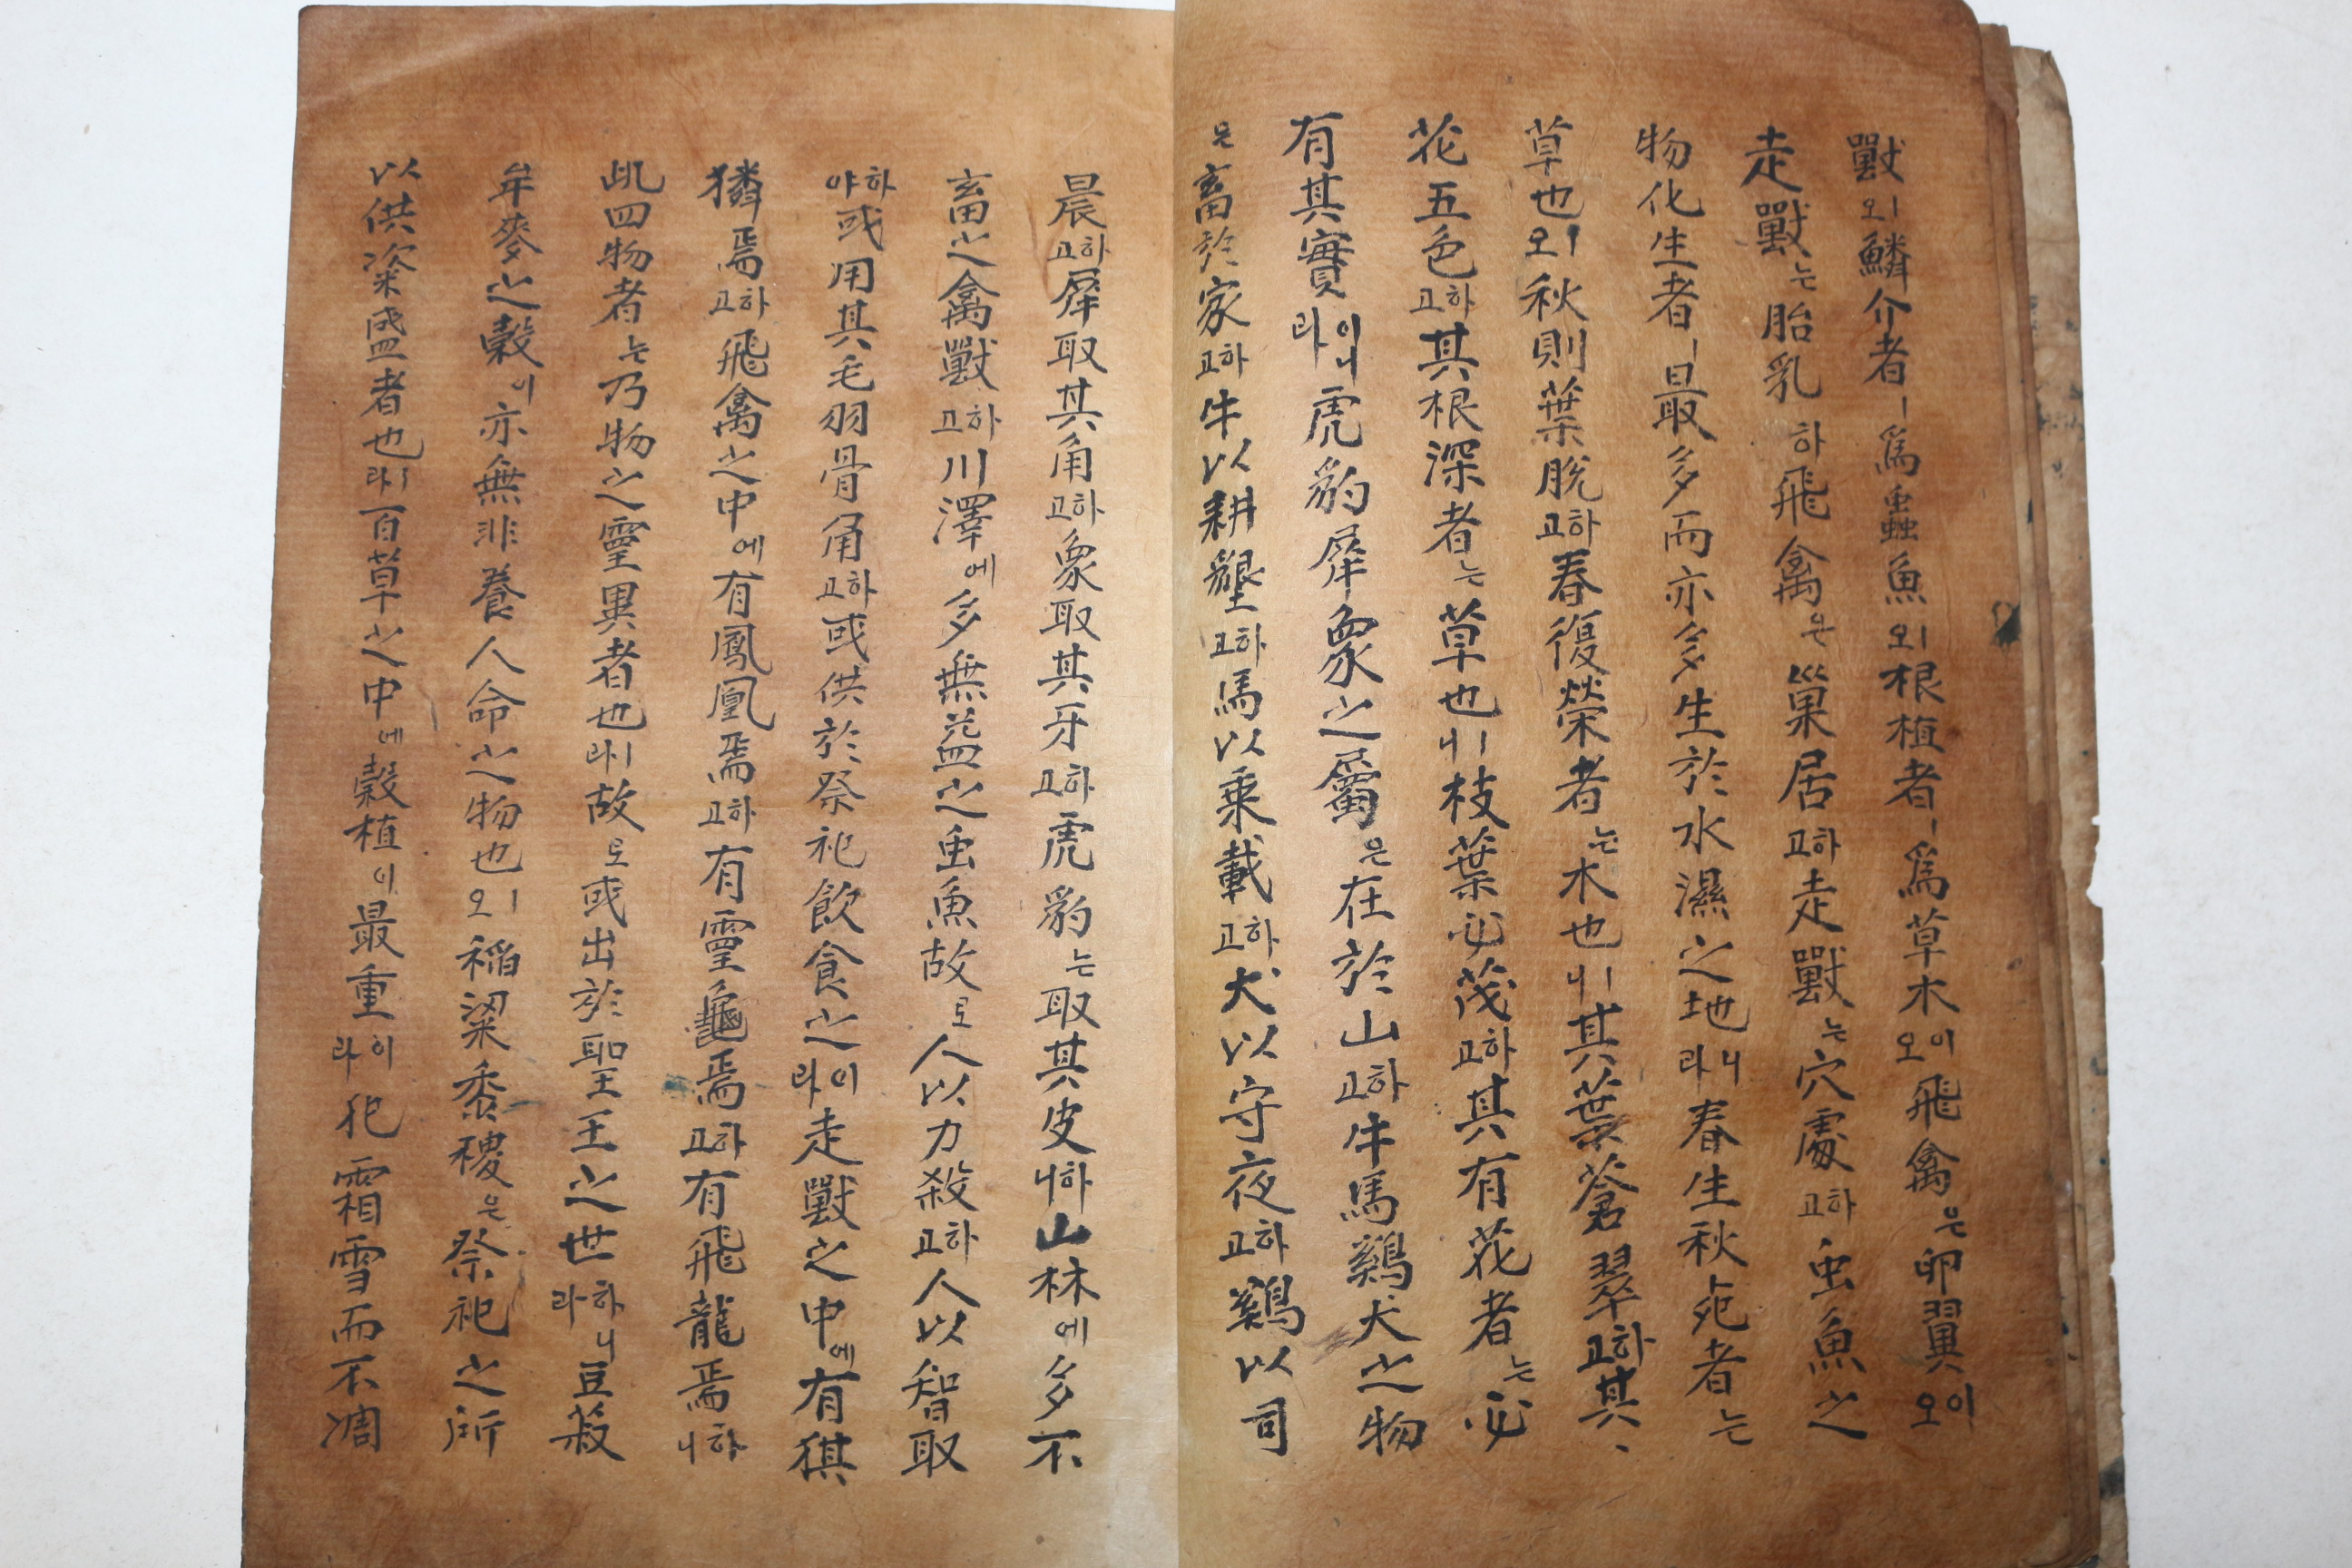 獸오ㅣ鱗介者ㅣ爲蟲魚오ㅣ根植者ㅣ爲草木오이飛禽은卵翼오이
走獸는胎乳하飛禽은巢居고하走獸는穴處고하虫魚之
物化生者ㅣ最多而亦多生於水濕之地라니春生秋死者는
草也오ㅣ秋則葉脫고하春復榮者는木也니ㅣ其葉蒼翠고하其、
花五色고하其根深者는草也니ㅣ枝葉必茂고하其有花者는必
有其實라이니虎豹犀象之屬은在於山고하牛馬鷄犬之物
은畜於家고하牛以耕墾고하馬以乘載고하犬以守夜고하鷄以司
晨고하犀取其角고하象取其牙고하虎豹는取其皮니하山林에多不
畜之禽獸고하川澤에多無益之虫魚故로人以力殺고하人以智取
야하或用其毛羽骨角고하或供於祭祀飮食之라이走獸之中에有猉
獜焉고하飛禽之中에有鳳凰焉고하有靈龜焉고하有飛龍焉니하
此四物者는乃物之靈異者也라ㅣ故로或出於聖王之世라하니豆菽
牟麥之穀이亦無非養人命之物也오ㅣ稻粱黍稷은祭祀之所
以供粢盛者也라ㅣ百草之中에穀植이最重라이犯霜雪而不凋